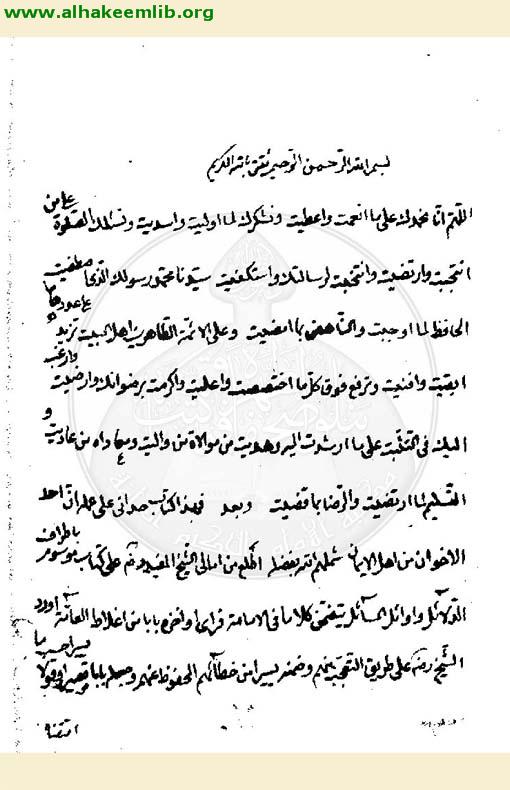 www.alhakeemlib.org
بسم الله الرحمن الرحيم ثقتي بالله الكريم
اللهم انا نحمدك على ما انعمت واعطيت ونشكرك لما اوليت واسديت ونسئلك الصلوة على من
انتجبت وارتضيت وانتخبت لرسالتك واستكفيت سيدنا محمد رسولك الذى اصطفيت
الحافظ لما اوجبت والناهض بما امضيت وعلى الائمة الطاهرين اهل البيت تزيد على عدد ما
ابقيت وافنيت وترفع فوق كل ما اختصصت واعليت واكرمت برضوانك وارضيت وارغب
اليك فى التثبت على ما ارشدت اليه وهديت من موالاة من واليت ومعاداه من عاديت و
التسليم لما ارتضيت والرضا بما قضيت وبعد فهذا الكتاب حدانى على عمله ان احد
الاخوان من اهل الايمان شملهم الله بفضله اطلع من امالى الشيخ المفيد رضه على كتاب موسوم باطراف
الدلائل واوائل المسائل يتضمن كلاما فى الامامة فراى اواخره بابا من اغلاط العامة اورد
الشيخ رضه على طريق التعجب منهم وضمنه يسيرا من خطائهم المحفوظ عنهم وجعله بابا قصيرا وقولا يسيرا حسب ما
اقتضته